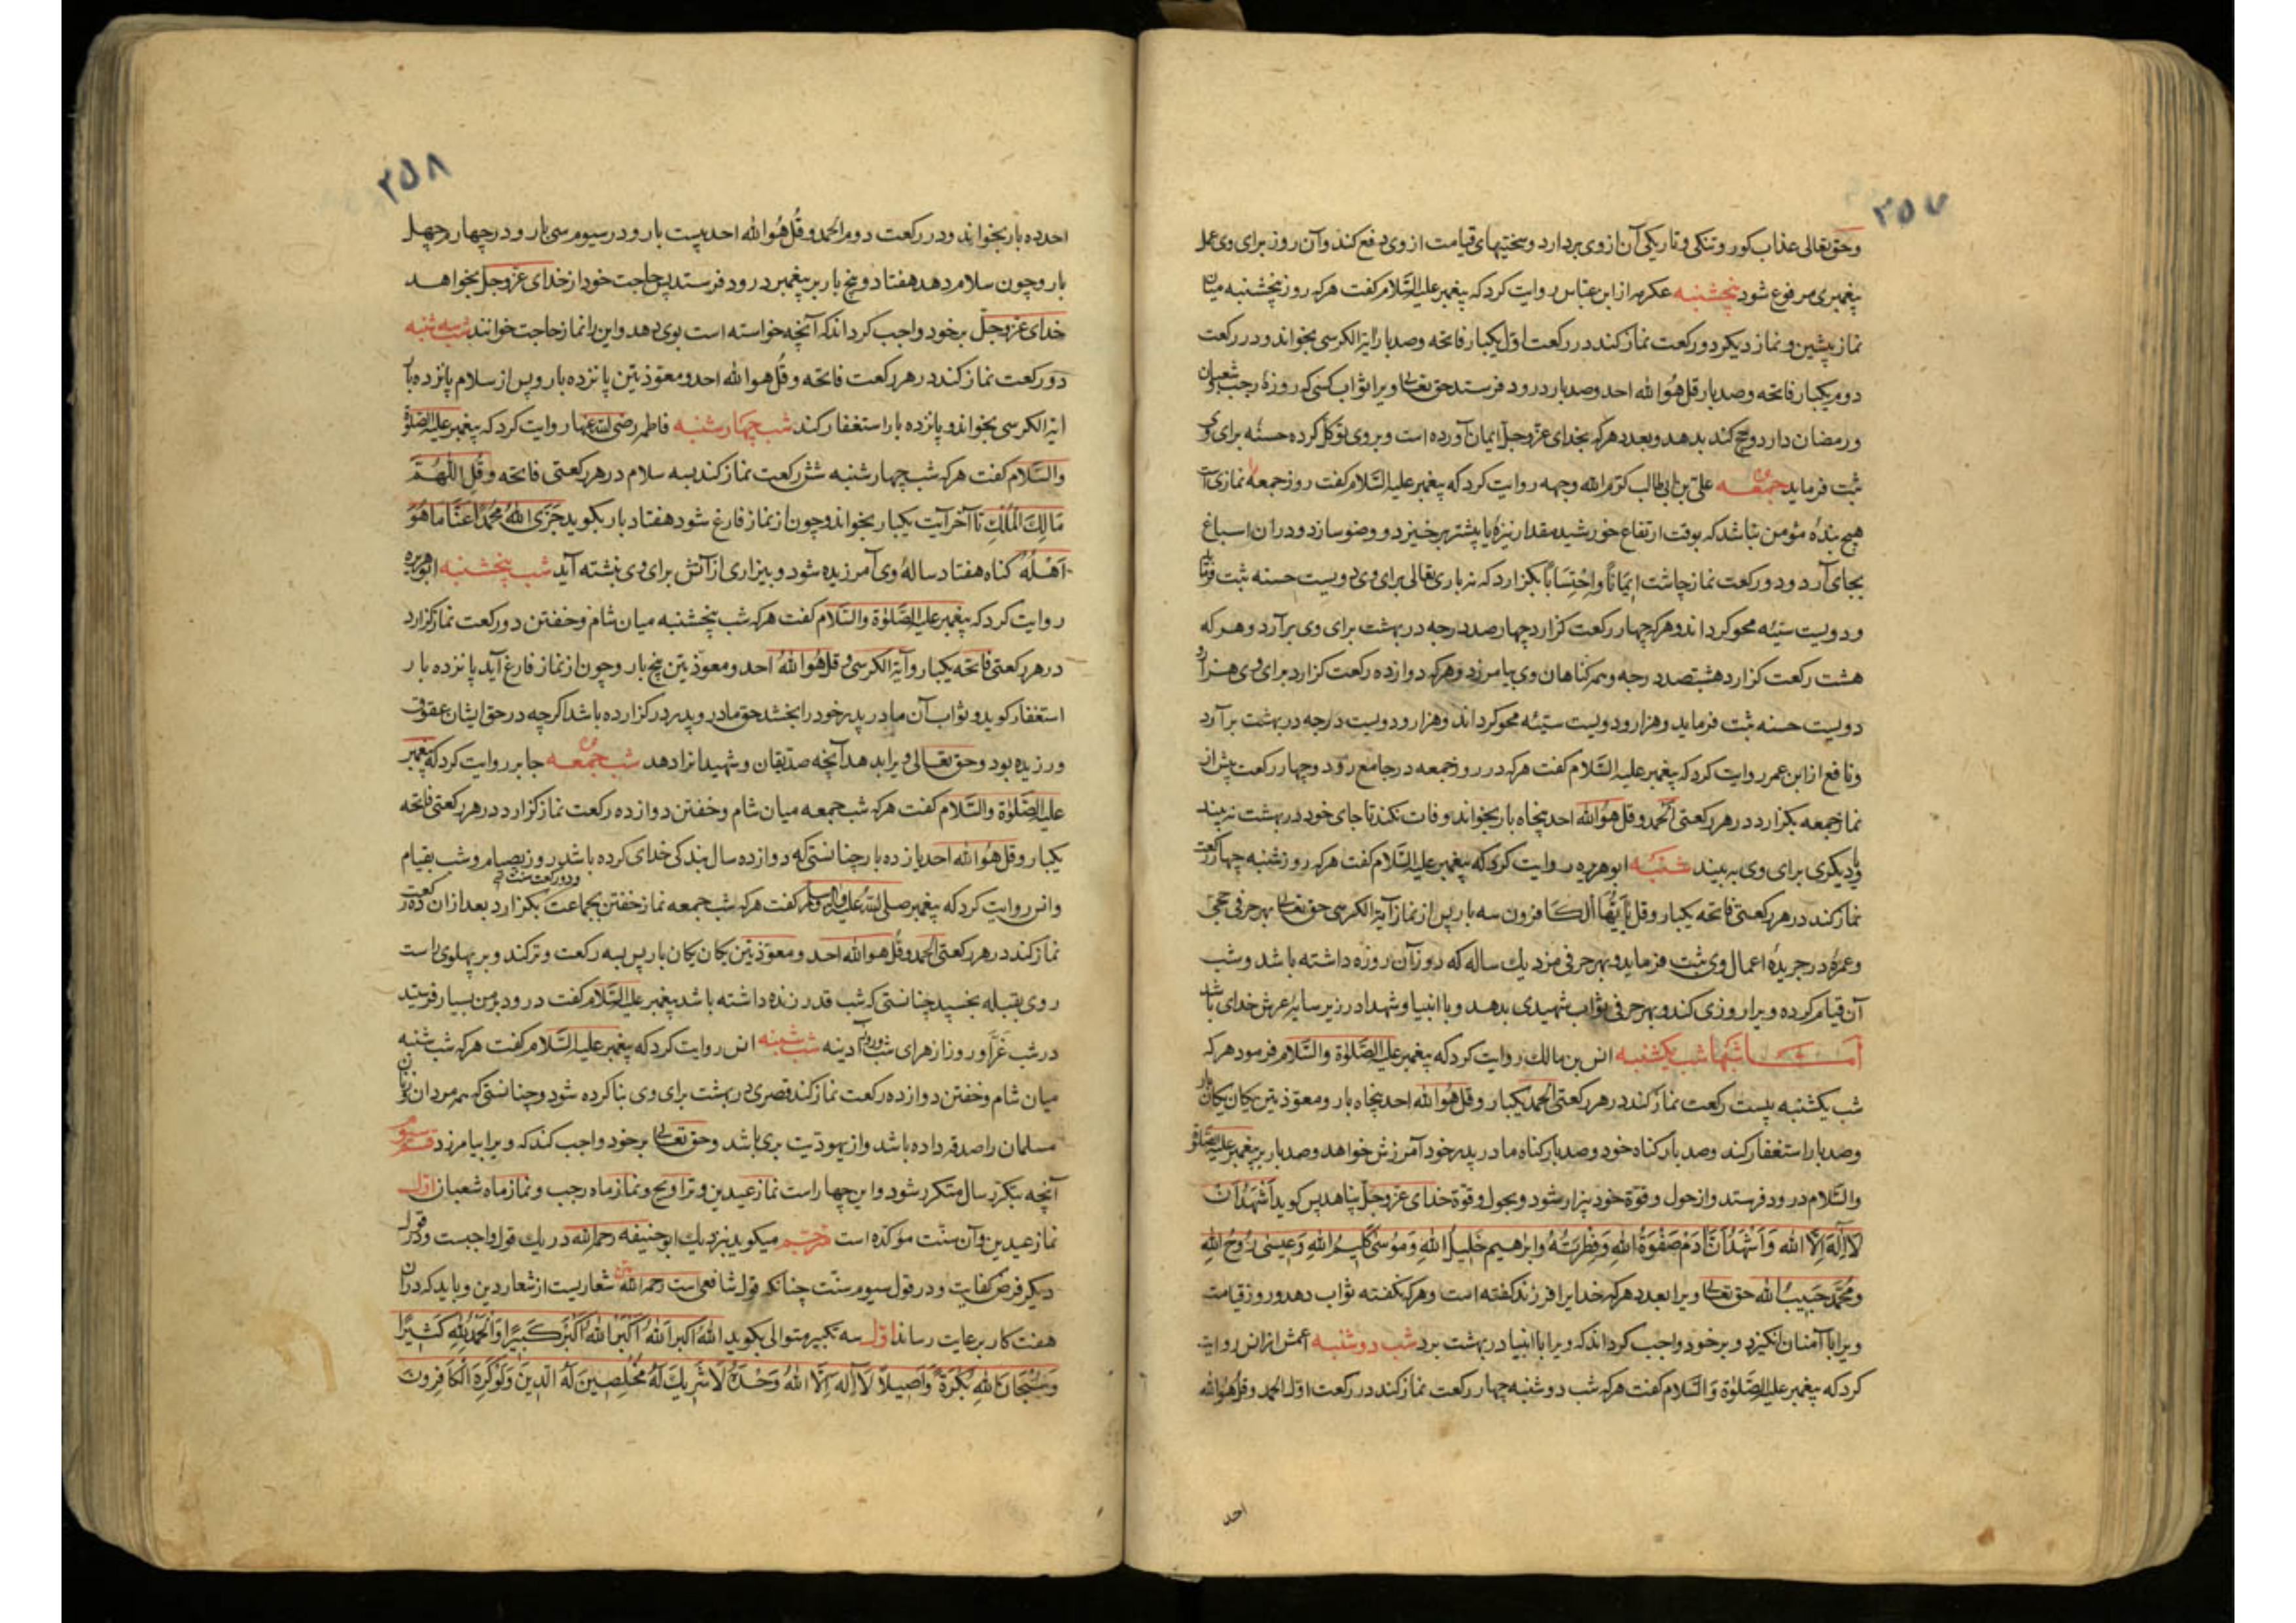 ۳۵۷
وحق تعالی عذاب کور وتنکی وتاریکی آن از وی بردارد وسختیهای قیامت از وی دفع کند وآن روز برای وی عمل
پیغمبری مرفوع شود پنجشنبه عکرمه از ابن عباس روایت کرد که پیغمبر علیه السَّلام کفت هرکه روز پنجشنبه میان
نماز پیشین و نماز دیکر دو رکعت نماز کند در رکعت اوّل یکبار فاتحه وصد بار آیة الکرسی بخواند ودر رکعت
دوم یکبار فاتحه وصد بار قل هُوَ الله احد وصد بار درود فرستد حق تعالی ویرا ثواب کسی که روزهٔ رجب وشعبان
ورمضان دارد وحج کند بدهد وبعدد هرکه بخدای عزّوجلّ ایمان آورده است وبروی توکّل کرده حسنه برای وی
ثبت فرماید جمعه علیّ بن ابی طالب کرّم الله وجهه روایت کرد که پیغمبر علیه السَّلام کفت روز جمعه نمازی است
هیچ بندهٔ مؤمن نباشد که بوقت ارتفاع خورشید مقدار نیزهٔ یا پیشتر برخیزد و وضو سازد ودر ان اسباغ
بجای آرد ودو رکعت نماز چاشت ایمَاناً واِحْتِسَاباً بکزارد که نه باری تعالی برای وی دویست حسنه ثبت فرماید
ودویست سیّئه محو کرداند وهرکه چهار رکعت کزارد چهارصد درجه در بهشت برای وی برآرد وهرکه
هشت رکعت کزارد هشتصد درجه وهمه کناهان وی بیامرزد وهرکه دوازده رکعت کزارد برای وی هزار و
دویست حسنه ثبت فرماید وهزار ودویست سیّئه محو کرداند وهزار ودویست درجه در بهشت برآرد
ونافع از ابن عمر روایت کرد که پیغمبر علیه السَّلام کفت هرکه در روز جمعه در جامع رود وچهار رکعت پیش از
نماز جمعه بکزارد در هر رکعتی الحَمد وقل هُوَ الله احد پنجاه بار بخواند وفات نکند تا جای خود در بهشت نبیند
یا دیکری برای وی به بیند شنبه ابو هریره روایت کرد که پیغمبر علیه السَّلام کفت هرکه روز شنبه چهار رکعت
نماز کند در هر رکعتی فاتحه یکبار وقل یَا اَیُّهَا الکافرون سه بار پس از نماز آیة الکرسی حق تعالی بهر حرفی حجّی
وعمرهٔ در جریدهٔ اعمال وی ثبت فرماید وبهر حرفی مزد یك ساله که روز آن روزه داشته باشد وشب
آن قیام کرده ویرا روزی کند وبهر حرفی ثواب شهیدی بدهد وبا انبیا وشهدا در زیر سایهٔ عرش خدای باشد
امـا شبها شب یکشنبه انس بن مالك روایت کرد که پیغمبر علیه الصَّلوٰة والسَّلام فرمود هرکه
شب یکشنبه بیست رکعت نماز کند در هر رکعتی الحَمد یکبار وقل هُوَ الله احد پنجاه بار ومعوّذتین یکان یکان بار
وصد بار استغفار کند وصد بار کناه خود وصد بار کناه مادر پدر خود آمرزش خواهد وصد بار بر پیغمبر علیه الصّلوة
والسَّلام درود فرستد واز حول وقوّة خود بیزار شود وبحول وقوّة خدای عزّوجلّ پناهد پس کوید اَشْهَدُ اَنْ
لَا اِلٰهَ اِلَّا اللهُ وَاَشْهَدُ اَنَّ آدَمَ صَفْوَةُ اللهِ وَفِطْرَتُهُ وابرٰهیم خَلِیلُ اللهِ وَمُوسٰی کَلِیمُ اللهِ وَعِیسٰی رُوحُ اللهِ
ومُحَمَّد حَبِیبُ الله حق تعالی ویرا بعدد هرکه خدایرا فرزند کفته است وهرکه نکفته ثواب دهد وروز قیامت
ویرا با آمنان انکیزد وبر خود واجب کرداند که ویرا با انبیا در بهشت برد شب دوشنبه اعمش از انس روایت
کرد که پیغمبر علیه الصَّلوٰة وَالسَّلام کفت هرکه شب دوشنبه چهار رکعت نماز کند در رکعت اوّل الحمد وقل هُوَ الله
احد
۳۵۸
احد ده بار بخواند ودر رکعت دوم الحمد وقُل هُوَ الله احد بیست بار ودر سیوم سی بار ودر چهارم چهل
بار وچون سلام دهد هفتاد وپنج بار بر پیغمبر درود فرستد پس حاجت خود از خدای عزّوجلّ بخواهد
خدای عزّوجلّ بر خود واجب کرداند که آنچه خواسته است بوی دهد واین را نماز حاجت خوانند شب سه شنبه
دو رکعت نماز کند در هر رکعت فاتحه وقل هوا الله احد ومعوّذتین پانزده بار وپس از سلام پانزده بار
ایة الکرسی بخواند وپانزده بار استغفار کند شب چهارشنبه فاطمه رضی الله عنها روایت کرد که پیغمبر علیه الصّلوة
والسَّلام کفت هرکه شب چهارشنبه شش رکعت نماز کند بسه سلام در هر رکعتی فاتحه وقُلِ اللّٰهُمَّ
مَالِكَ الْمُلْكِ تا آخر آیت یکبار بخواند وچون از نماز فارغ شود هفتاد بار بکوید جَزَی اللهُ مُحَمَّداً عَنَّا مَا هُوَ
اَهْلُهُ کناه هفتاد سالهٔ وی آمرزیده شود وبیزاری از آتش برای وی نبشته آید شب پنجشنبه ابو هریره
روایت کرد که پیغمبر علیه الصَّلوٰة والسَّلام کفت هرکه شب پنجشنبه میان شام وخفتن دو رکعت نماز کزارد
در هر رکعتی فاتحه یکبار وآیة الکرسی وقل هُوَ اللهُ احد ومعوّذتین پنج بار وچون از نماز فارغ آید پانزده بار
استغفار کوید وثواب آن مادر پدر خود را بخشد حق مادر وپدر در کزارده باشد اکرچه در حق ایشان عقوق
ورزیده بود وحق تعالی ویرا بدهد آنچه صدّیقان وشهیدانرا دهد شب جمعه جابر روایت کرد که پیغمبر
علیه الصَّلوٰة والسَّلام کفت هرکه شب جمعه میان شام وخفتن دوازده رکعت نماز کزارد در هر رکعتی فاتحه
یکبار وقل هُوَ الله احد یازده بار چنانستی که دوازده سال بندکی خدای کرده باشد روز بصیام وشب بقیام
وانس روایت کرد که پیغمبر صلی الله علیه وآله وسلم کفت هرکه شب جمعه نماز خفتن بجماعت بکزارد ودو رکعت سنت بعد ازان ده رکعت
نماز کند در هر رکعتی الحمد وقُل هو الله احد ومعوّذتین یکان یکان بار پس به سه رکعت وتر کند وبر پهلوی راست
روی بقبله بخسپد چنانستی که شب قدر زنده داشته باشد پیغمبر علیه السَّلام کفت درود بر من بسیار فرستید
در شب غرّا وروز ازهر ای شب وروز آدینه شب شنبه انس روایت کرد که پیغمبر علیه السَّلام کفت هرکه شب شنبه
میان شام وخفتن دوازده رکعت نماز کند قصری در بهشت برای وی بنا کرده شود وچنانستی که همه مردان وزنان
مسلمان را صدقه داده باشد واز یهودیّت بری باشد وحق تعالی بر خود واجب کند که ویرا بیامرزد قسم سیوم
آنچه بتکرّر سال متکرّر شود واین چهار است نماز عیدین وتراویح ونماز ماه رجب ونماز ماه شعبان اوّل
نماز عیدین وآن سنّت مؤکّده است مترجم میکوید بنزدیك ابو حنیفه رحمه الله در یك قول واجبست ودر قول
دیکر فرض کفایت ودر قول سیوم سنّت چنانکه قول شافعی است رحمه الله متن شعاریست از شعار دین وباید که در ان
هفت کار برعایت رساند اوّل سه تکبیر متوالی بکوید اللهُ اکبر اَللهُ اَکْبَرُ اللهُ اَکْبَرُ کَبِیرًا وَالْحَمْدُ لِلهِ کَثِیرًا
وَسُبْحَانَ اللهِ بُکْرَةً وَاَصِیلًا لَا اِلٰهَ اِلَّا اللهُ وَحْدَهُ لَا شَرِیكَ لَهُ مُخْلِصِینَ لَهُ الدِّینَ وَلَوْ کَرِهَ الْکَافِرُونَ